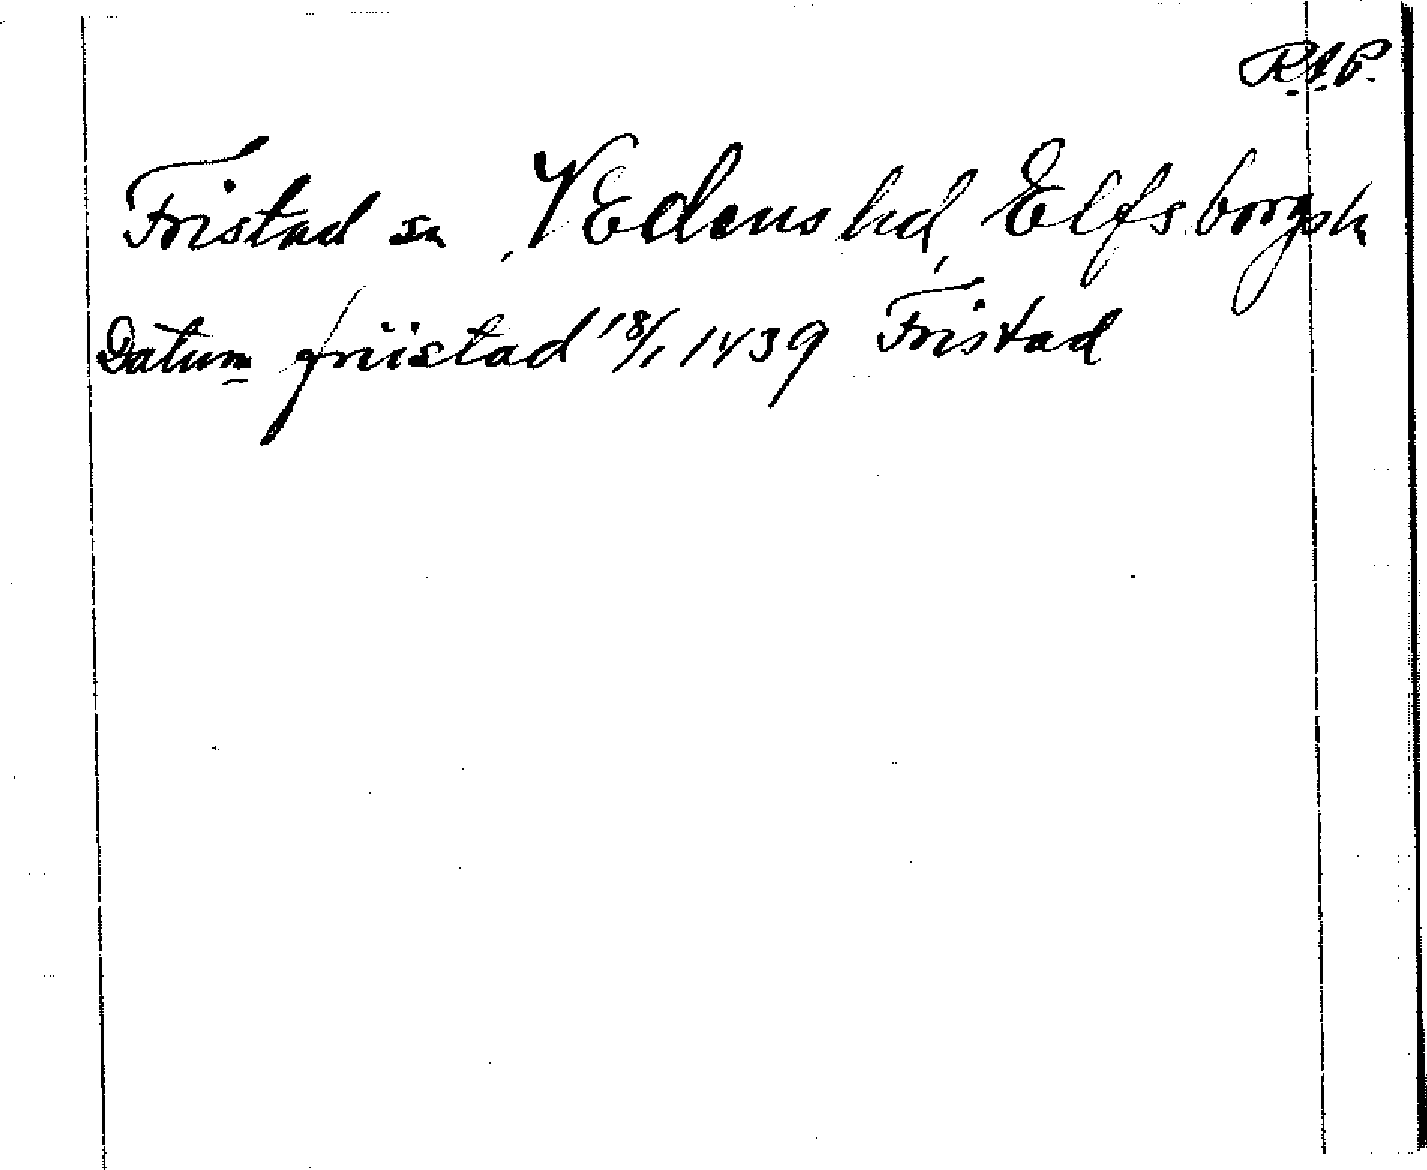 R.A.P.
Fristad sn, Vedens hd, Elfsborgs l.
Datum friistad 18/1 1439 Fristad